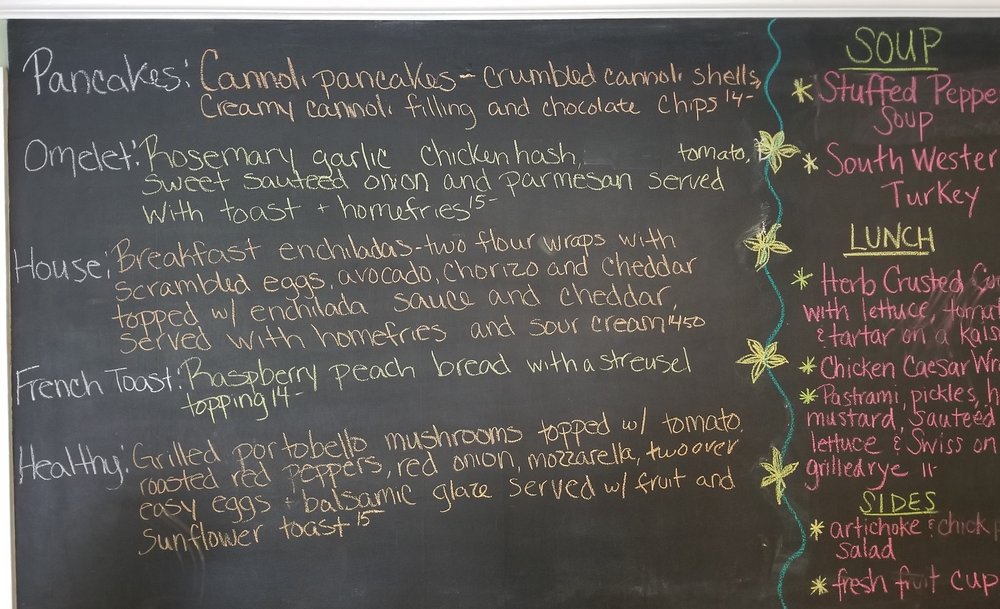 Pancakes: Cannoli pancakes - crumbled cannoli shells,
Creamy cannoli filling and chocolate chips 14-
Omelet: Rosemary garlic chicken hash, tomato,
sweet sauteed onion and parmesan served
with toast + homefries 15-
House: Breakfast enchiladas - two flour wraps with
scrambled eggs, avocado, chorizo and cheddar
topped w/ enchilada sauce and cheddar,
served with homefries and sour cream 14.50
French Toast: Raspberry peach bread with a streusel
topping 14-
Healthy: Grilled portobello mushrooms topped w/ tomato,
roasted red peppers, red onion, mozzarella, two over
easy eggs + balsamic glaze served w/ fruit and
sunflower toast 15
SOUP
* Stuffed Peppe
Soup
* South Wester
Turkey
LUNCH
* Herb Crusted Co
with lettuce, tomat
& tartar on a Kais
* Chicken Caesar Wr
* Pastrami, pickles, h
mustard, Sauteed
lettuce & Swiss on
grilled rye 11-
SIDES
* artichoke & chick p
salad
* fresh fruit cup